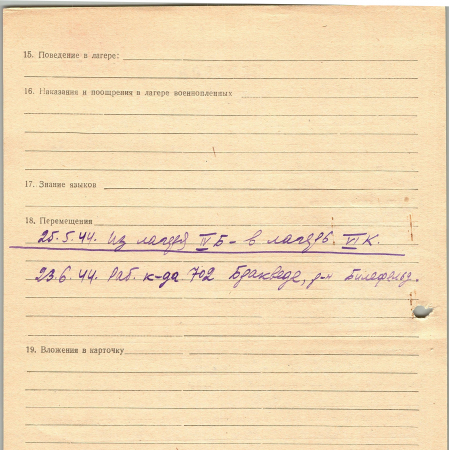 15. Поведение в лагере:
16. Наказания и поощрения в лагере военнопленных
17. Знание языков
18. Перемещения
25.5.44. Из лагеря IV Б - в лагерь VI К.
23.6.44. Раб. к-да 702 Браквede, р-н Билефельд.
19. Вложения в карточку